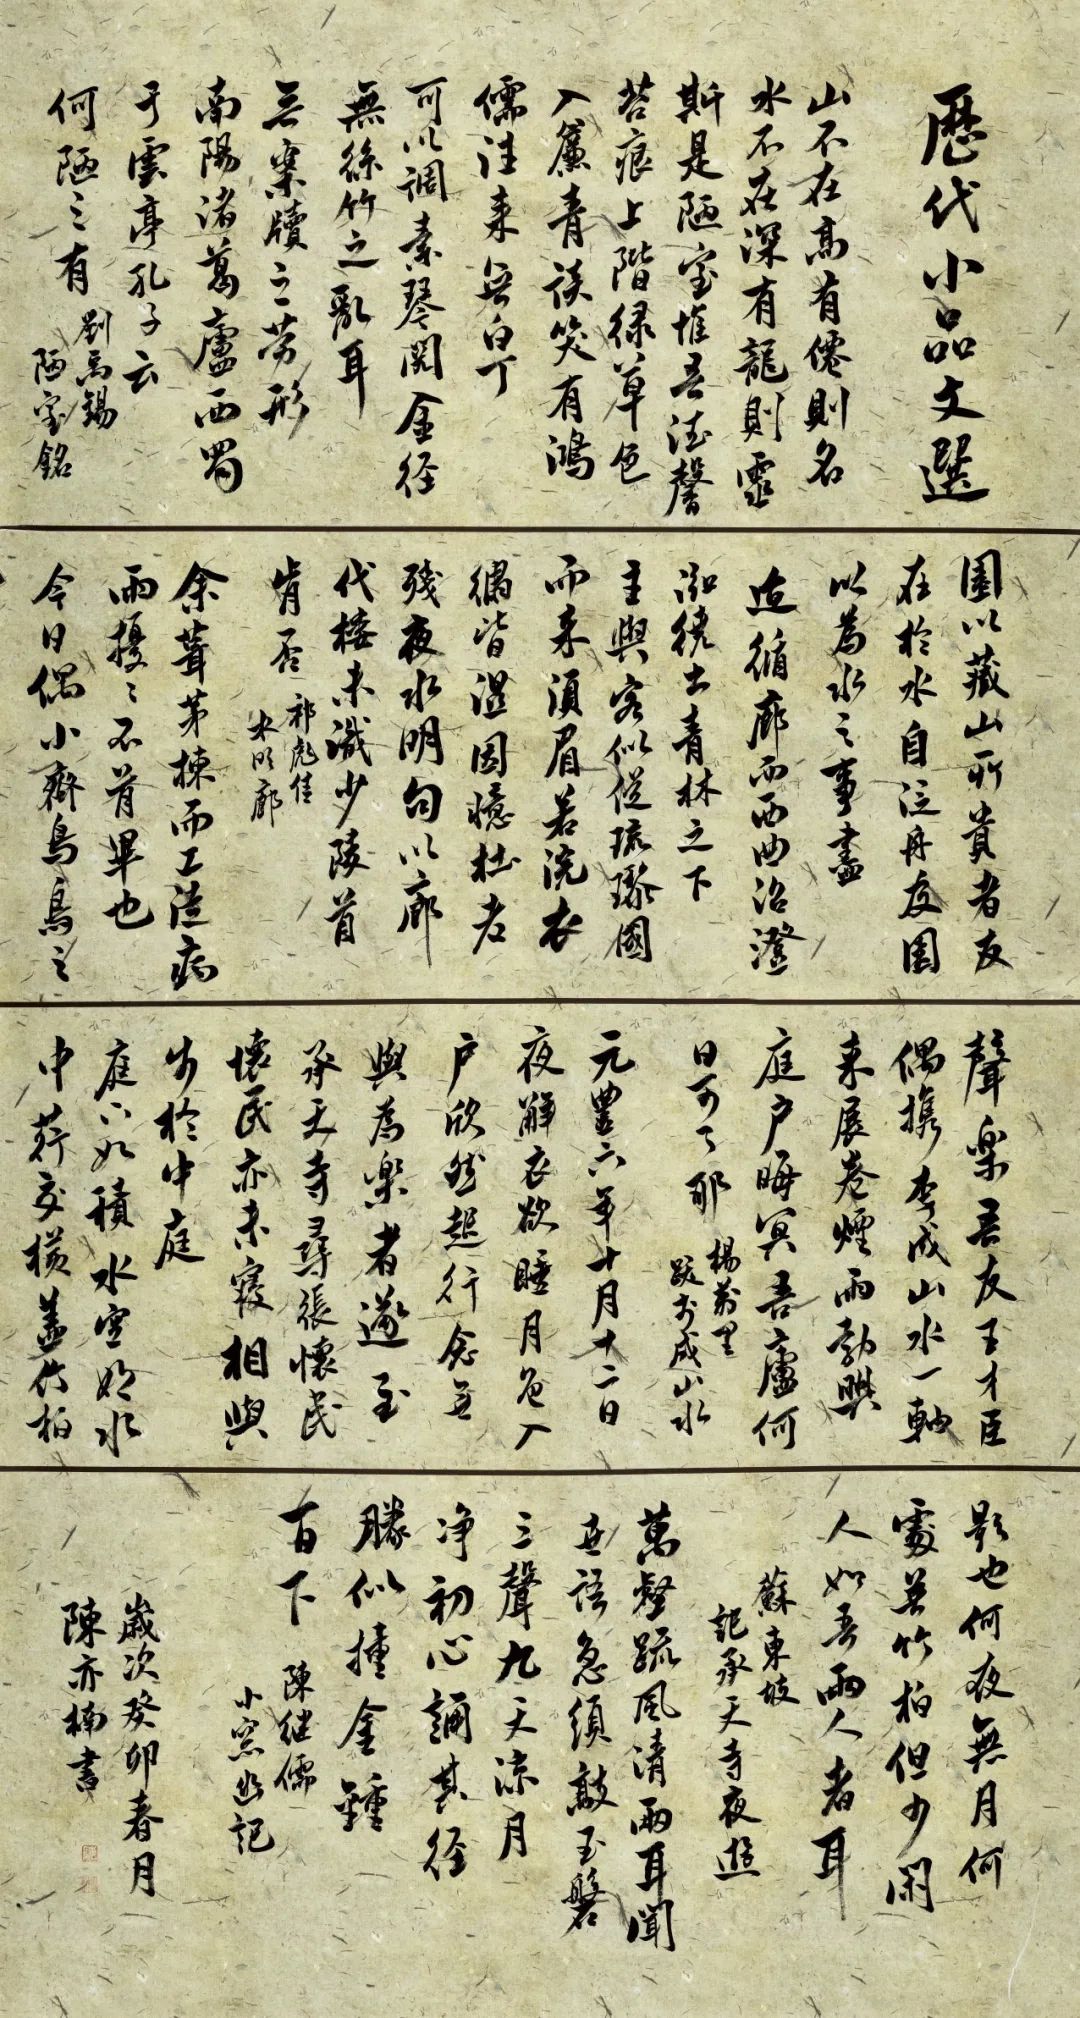 歷代小品文選
山不在高有僊則名
水不在深有龍則靈
斯是陋室惟吾德馨
苔痕上階緑草色
入簾青談笑有鴻
儒往来無白丁
可以調素琴閱金径
無絲竹之亂耳
無案牘之劳形
南陽诸葛廬西蜀
子雲亭孔子云
何陋之有
劉禹錫
陋室銘
園以藏山所貴者反
在於水自泛舟及園
以為水之事盡
迨循廊而西曲沼澄
泓绕出青林之下
主與客似從琉璃國
而来須眉若浣衣
褐皆湿因憶杜老
残夜水明句以廊
代楼未識少陵首
肯否
祁彪佳
水明廊
余葺茅棟而工徒病
雨擾々不肯畢也
今日偶小齋鳥鳥之
聲楽吾友王才臣
偶携李成山水一軸
来展卷煙雨勃興
庭户晦冥吾廬何
日可了耶
楊萬里
跋李成山水
元豐六年十月十二日
夜解衣欲睡月色入
户欣然起行念無
與為楽者遂至
承天寺尋張懷民
懷民亦未寝相與
步於中庭
庭下如積水空明水
中荇交横盖竹柏
影也何夜無月何
處無竹柏但少閑
人如吾兩人者耳
蘇東坡
記承天寺夜遊
萬壑疏風清兩耳聞
世語急須敲玉磬
三聲九天涼月
净初心誦其径
勝似撞金鍾
百下
陳继儒
小窓幽記
歲次癸卯春月
陳亦楠書